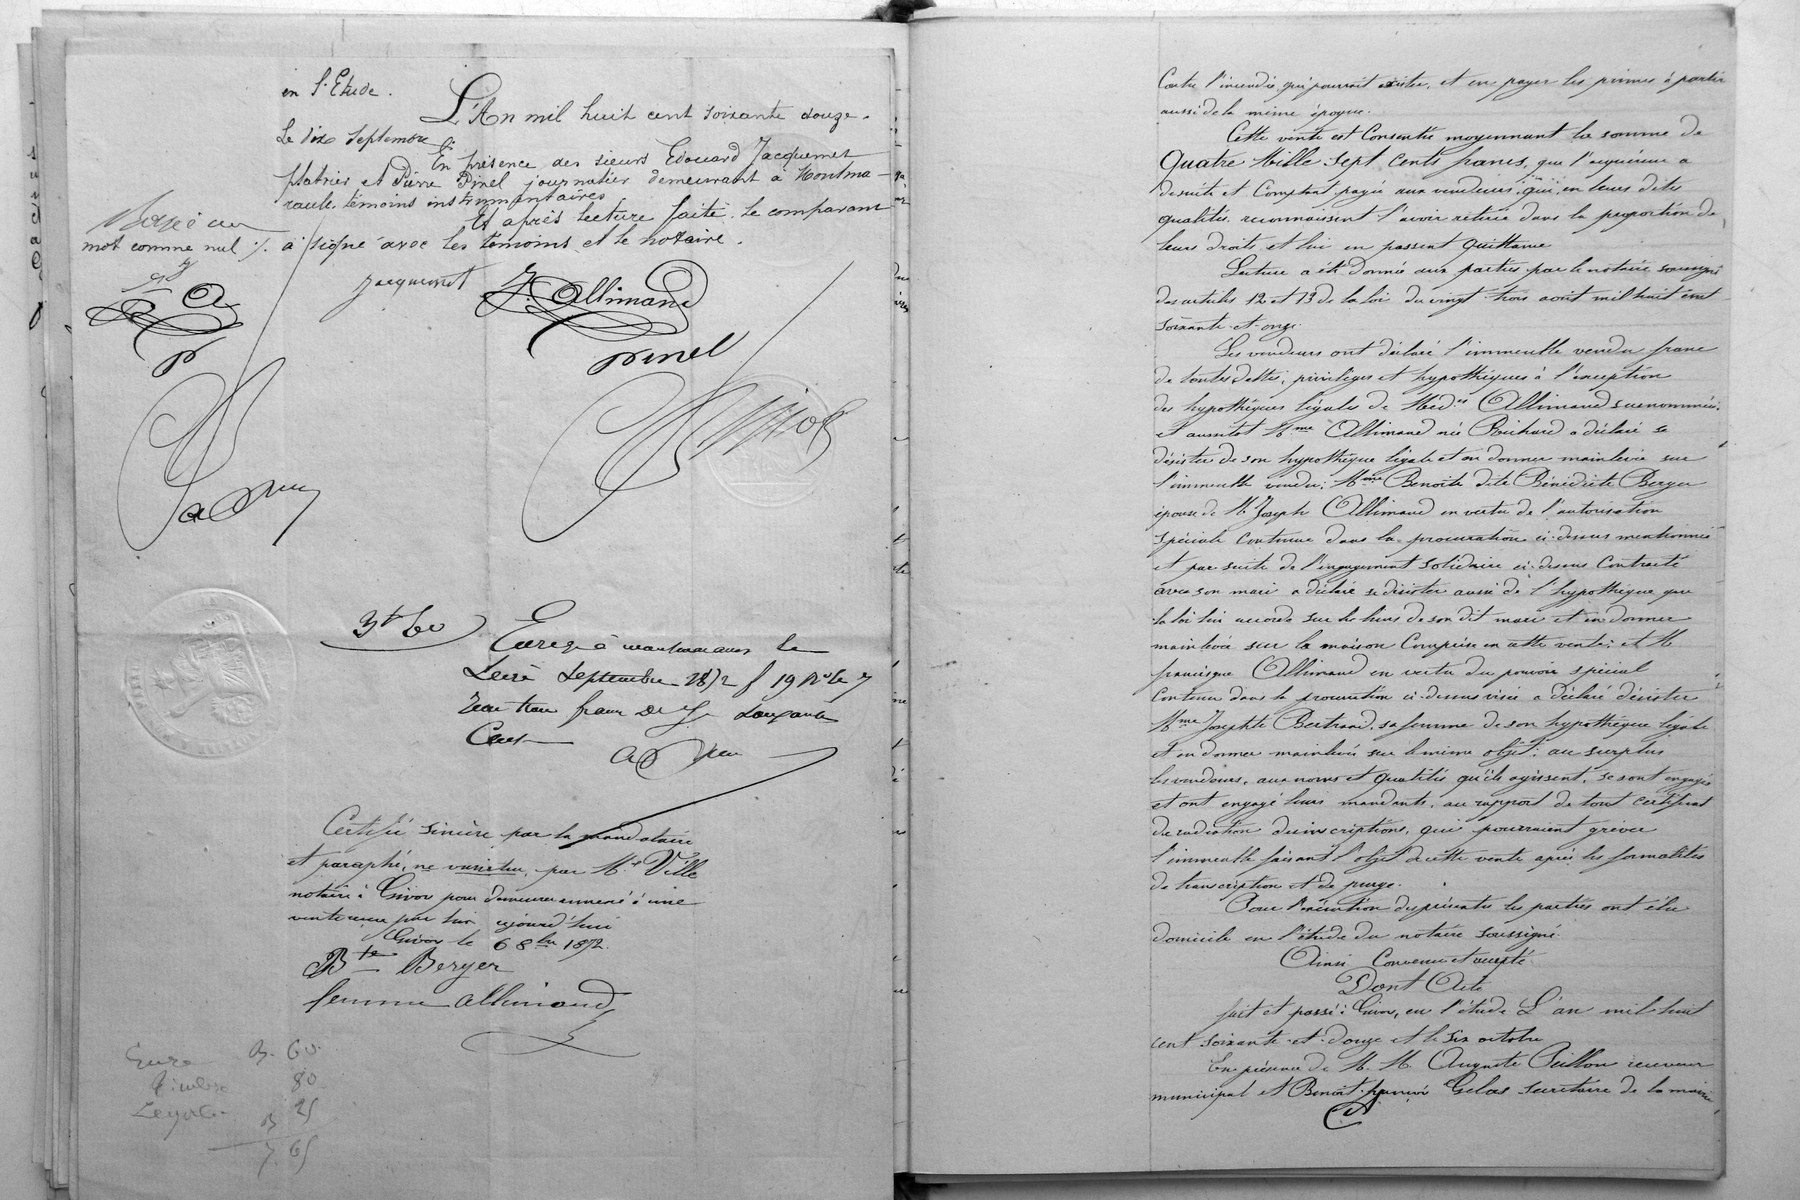 en l'Etude.
L'An mil huit cent soixante douze.
Le dix septembre
En présence des sieurs Edouard Jacquemet
platrier et Pierre Pinel journalier demeurant à Montma-
rault, témoins instrumentaires
Et après lecture faite. Le comparant
a signé avec les témoins et le notaire.
mot comme nul
Jacquemet
J. Allimand
Pinel
Enreg à
septembre 1872 f 19
Certifié sincère par la mandataire
et paraphé, ne varietur, par Me Ville
notaire à Givors pour demeurer annexé à une
vente reçue par lui aujourd'hui
Givors le 6 8bre 1872.
Bte Berger
femme allimand
3. 60
80
25
65
Contre l'incendie qui pourrait exister, et en payer les primes à partir
aussi de la même époque.
Cette vente est Consentie moyennant la somme de
Quatre Mille Sept Cents francs, que l'acquéreur a
de suite et Comptant payée aux vendeurs, qui, en leurs dites
qualités, reconnaissent l'avoir retirée dans la proportion de
leurs droits et lui en passent Quittance
Lecture a été donnée aux parties par le notaire soussigné
des articles 12 et 13 de la loi du vingt trois août mil huit cent
soixante-et-onze.
Les vendeurs ont déclaré l'immeuble vendu franc
de toutes dettes, privilèges et hypothèques à l'exception
des hypothèques légales de Mesdes Allimand susnommées,
et aussitôt Mme Allimand née Richard a déclaré se
désister de son hypothèque légale et en donner mainlevée sur
l'immeuble vendu; Mme Benoite dite Bénédicte Berger
épouse de Mr Joseph Allimand en vertu de l'autorisation
spéciale Contenue dans la procuration ci-dessus mentionnée
et par suite de l'engagement solidaire ci-dessus Contracté
avec son mari a déclaré se désister aussi de l'hypothèque que
la loi lui accorde sur les biens de son dit mari et en donner
mainlevée sur la maison Comprise en cette vente; et M
francisque Allimand en vertu du pouvoir spécial
Contenu dans la procuration ci-dessus visée a déclaré désister
Mme Josephte Bertrand, sa femme de son hypothèque légale
et en donner mainlevée sur le même objet; au surplus
les vendeurs, aux noms et qualités qu'ils agissent, se sont engagés
et ont engagé leurs mandants, au rapport de tout certificat
de radiation des inscriptions, qui pourraient grever
l'immeuble faisant l'objet de cette vente après les formalités
de transcription et de purge.
Pour l'exécution des présentes les parties ont élu
domicile en l'étude du notaire soussigné.
Ainsi Convenu et accepté
Dont Acte
fait et passé à Givors, en l'étude L'an mil huit
cent soixante-et-douze et le six octobre
En présence de M. M. Auguste Peillon receveur
municipal et Benoît françois Gelas secrétaire de la mairie